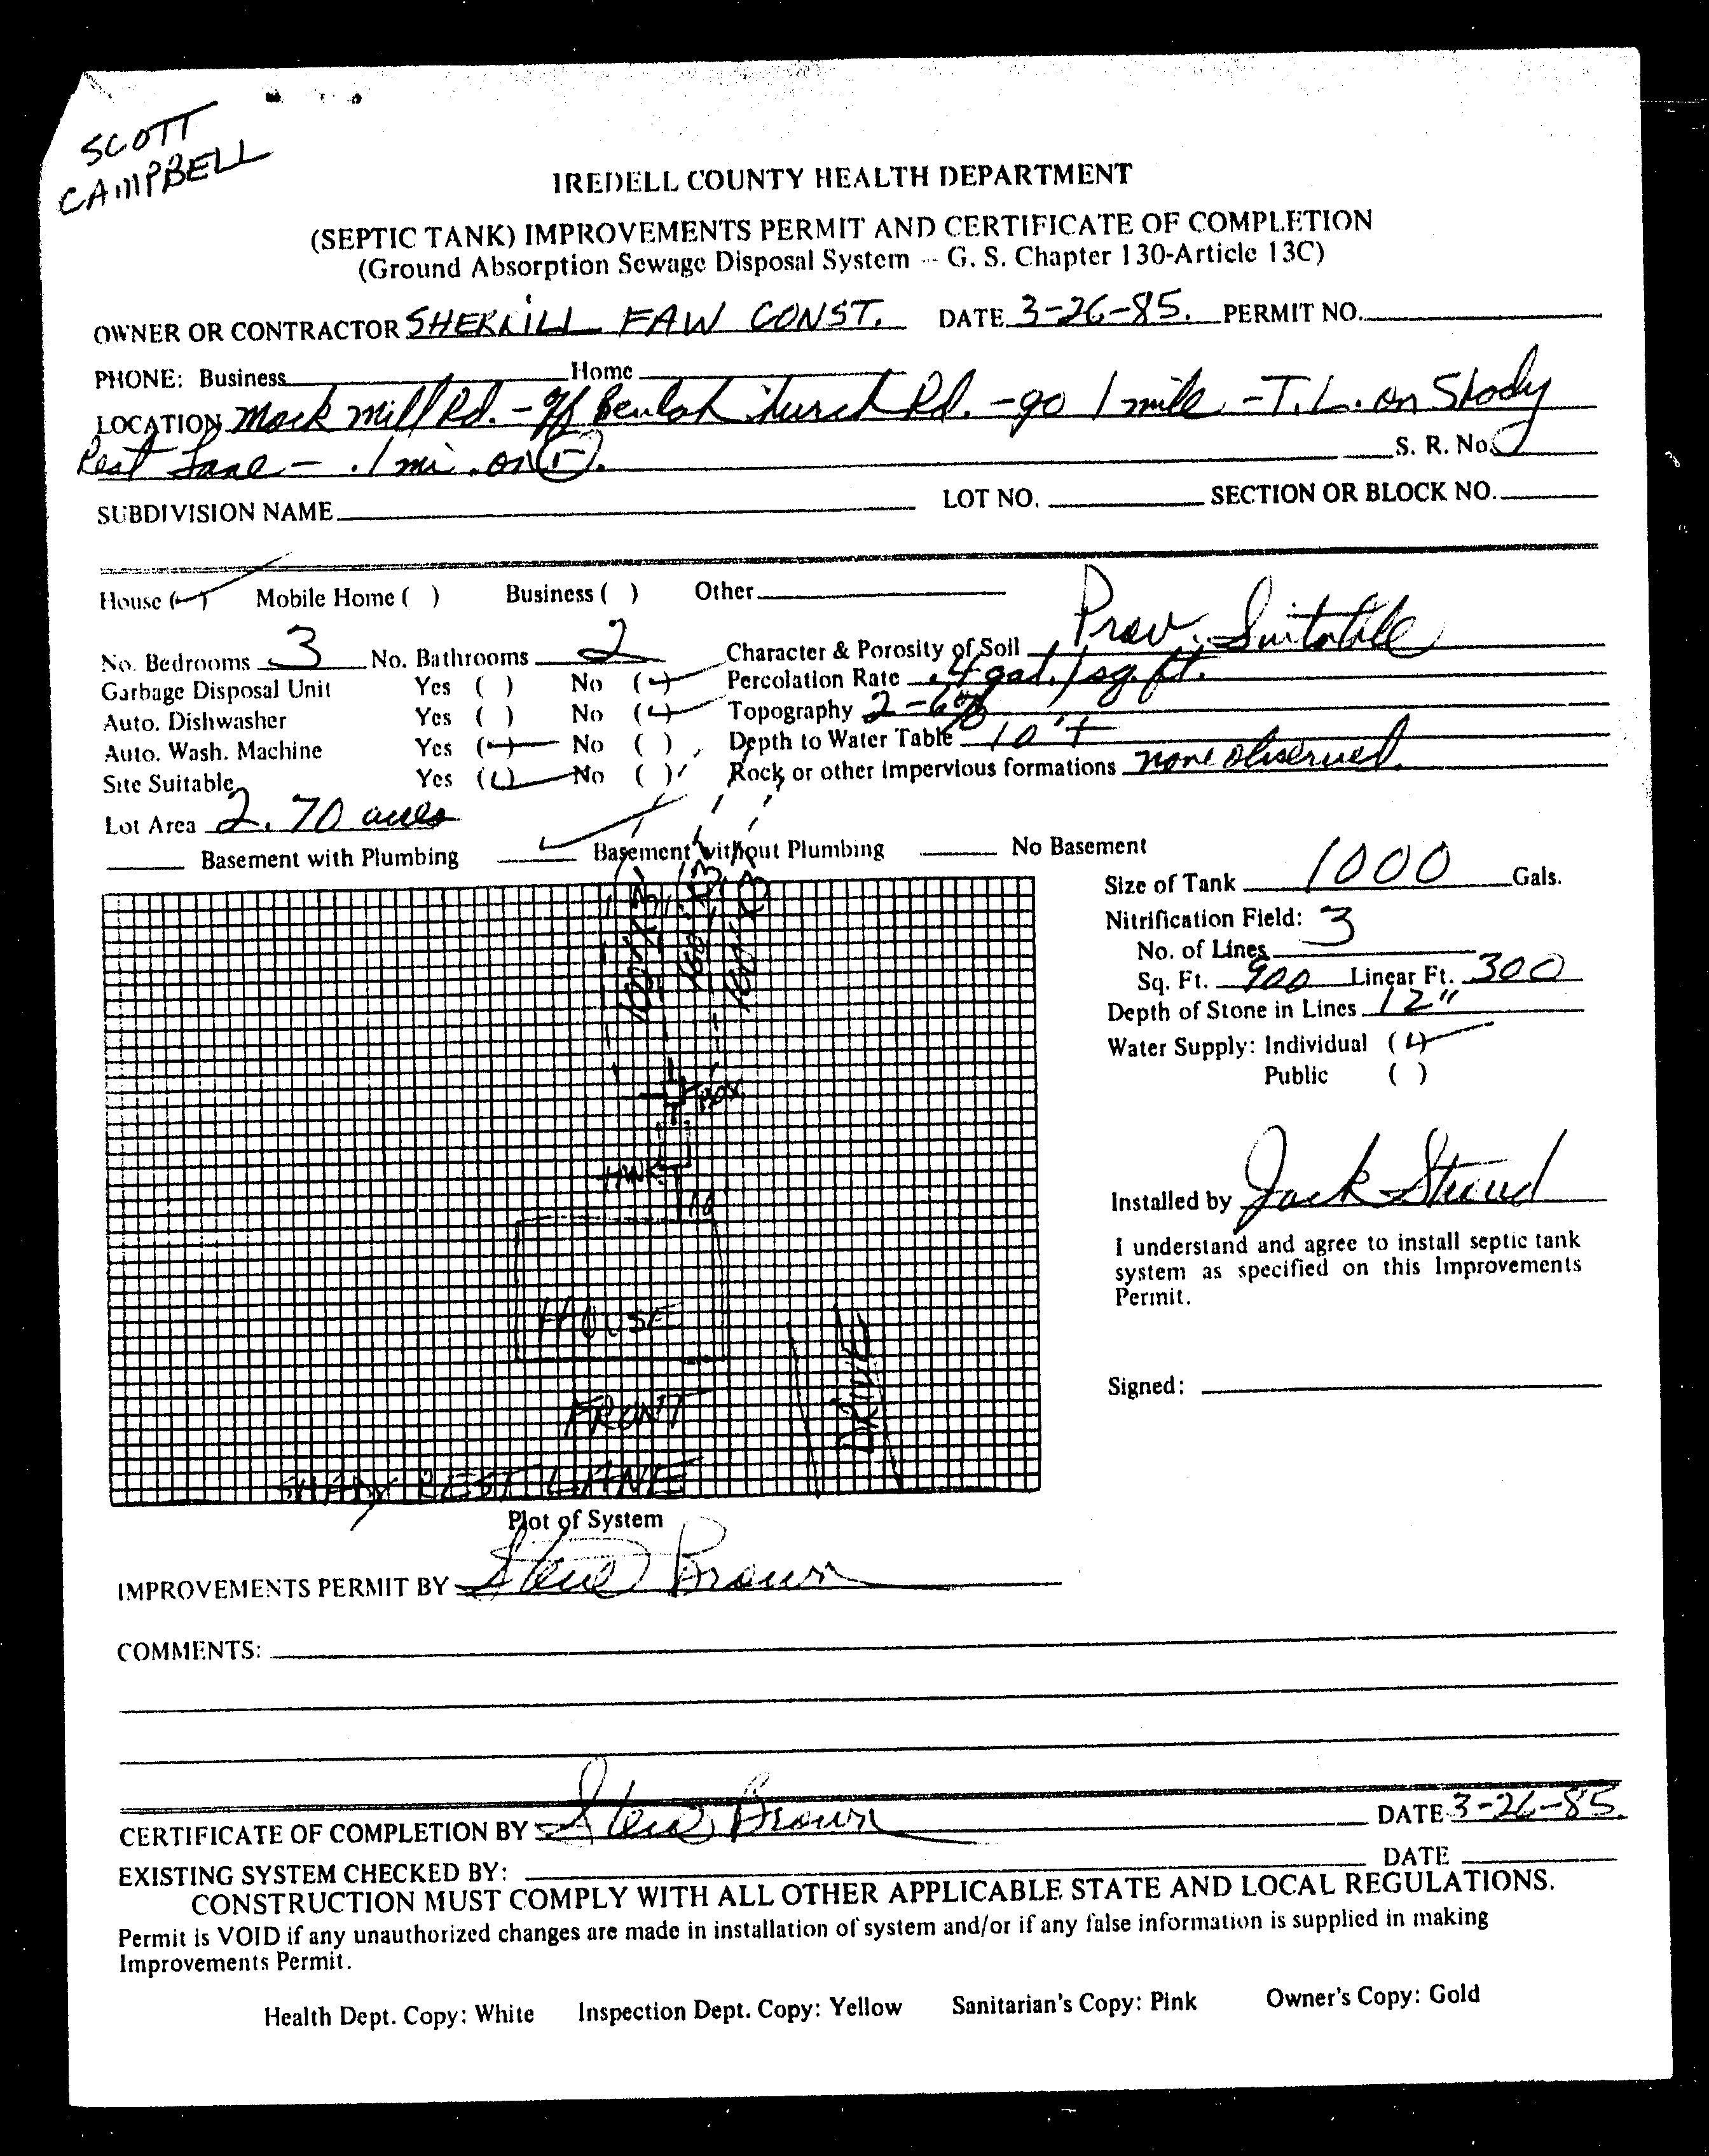 SCOTT
CAMPBELL
IREDELL COUNTY HEALTH DEPARTMENT
(SEPTIC TANK) IMPROVEMENTS PERMIT AND CERTIFICATE OF COMPLETION
(Ground Absorption Sewage Disposal System -- G. S. Chapter 130-Article 13C)
OWNER OR CONTRACTOR SHERRILL FAW CONST. DATE 3-26-85. PERMIT NO.
PHONE: Business Home
LOCATION Mock Mill Rd. - off Beulah Church Rd. - go 1 mile - T.L. on Shady
Rest Lane - .1 mi. on
S. R. No.
SUBDIVISION NAME LOT NO. SECTION OR BLOCK NO.
House (✓) Mobile Home ( ) Business ( ) Other
No. Bedrooms 3 No. Bathrooms 2 Character & Porosity of Soil Prov. Suitable
Garbage Disposal Unit Yes ( ) No (✓) Percolation Rate .4 gal./sq. ft.
Auto. Dishwasher Yes ( ) No (✓) Topography 2-6%
Auto. Wash. Machine Yes (✓) No ( ) Depth to Water Table 10'+
Site Suitable Yes (✓) No ( ) Rock or other impervious formations none observed.
Lot Area 2.70 acres
Basement with Plumbing ✓ Basement without Plumbing No Basement
Size of Tank 1000 Gals.
Nitrification Field: 3
No. of Lines
Sq. Ft. 900 Linear Ft. 300
Depth of Stone in Lines 12"
Water Supply: Individual (✓)
Public ( )
100'X3'
100'X3'
100'X3'
BOX
TANK
10
HOUSE
FRONT
DRIVE
SHADY REST LANE
Installed by Jack Stroud
I understand and agree to install septic tank
system as specified on this Improvements
Permit.
Signed:
Plot of System
IMPROVEMENTS PERMIT BY Steve Brown
COMMENTS:
CERTIFICATE OF COMPLETION BY Steve Brown DATE 3-26-85.
EXISTING SYSTEM CHECKED BY: DATE
CONSTRUCTION MUST COMPLY WITH ALL OTHER APPLICABLE STATE AND LOCAL REGULATIONS.
Permit is VOID if any unauthorized changes are made in installation of system and/or if any false information is supplied in making
Improvements Permit.
Health Dept. Copy: White Inspection Dept. Copy: Yellow Sanitarian's Copy: Pink Owner's Copy: Gold